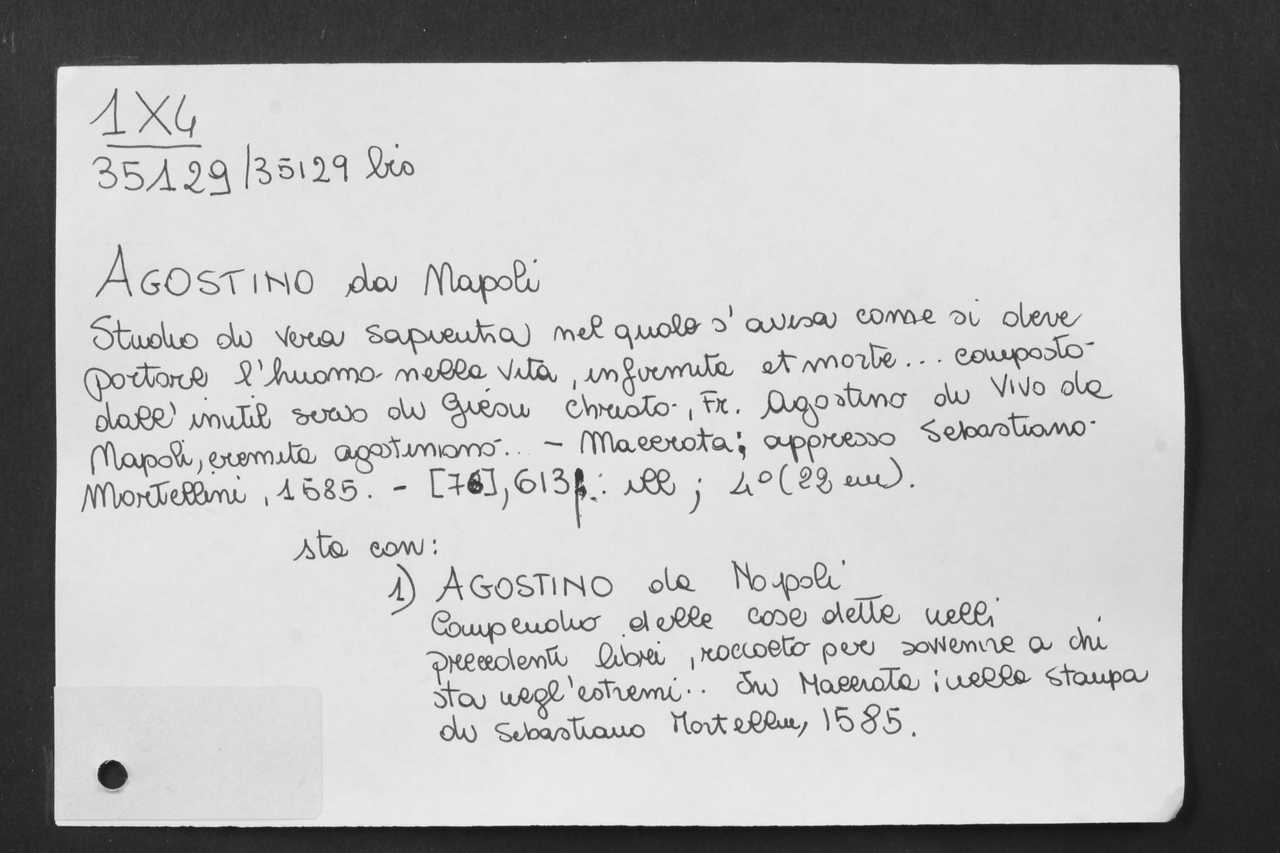 1X4
35129/35129 bis
AGOSTINO da Napoli
Studio di vera sapientia nel quale s'avisa come si deve
portare l'huomo nella vita, infirmità et morte... composto
dall'inutil servo di Giesu Christo, Fr. Agostino di Vivo da
Napoli, eremita agostiniano... - Macerata; appresso Sebastiano
Martellini, 1585. - [76], 613 p.: ill ; 4° (22 cm).
sta con:
1) AGOSTINO da Napoli
Compendio delle cose dette nelli
precedenti libri, raccolto per sovvenire a chi
sta negl'estremi.. In Macerata ; nella stampa
di Sebastiano Martellini, 1585.